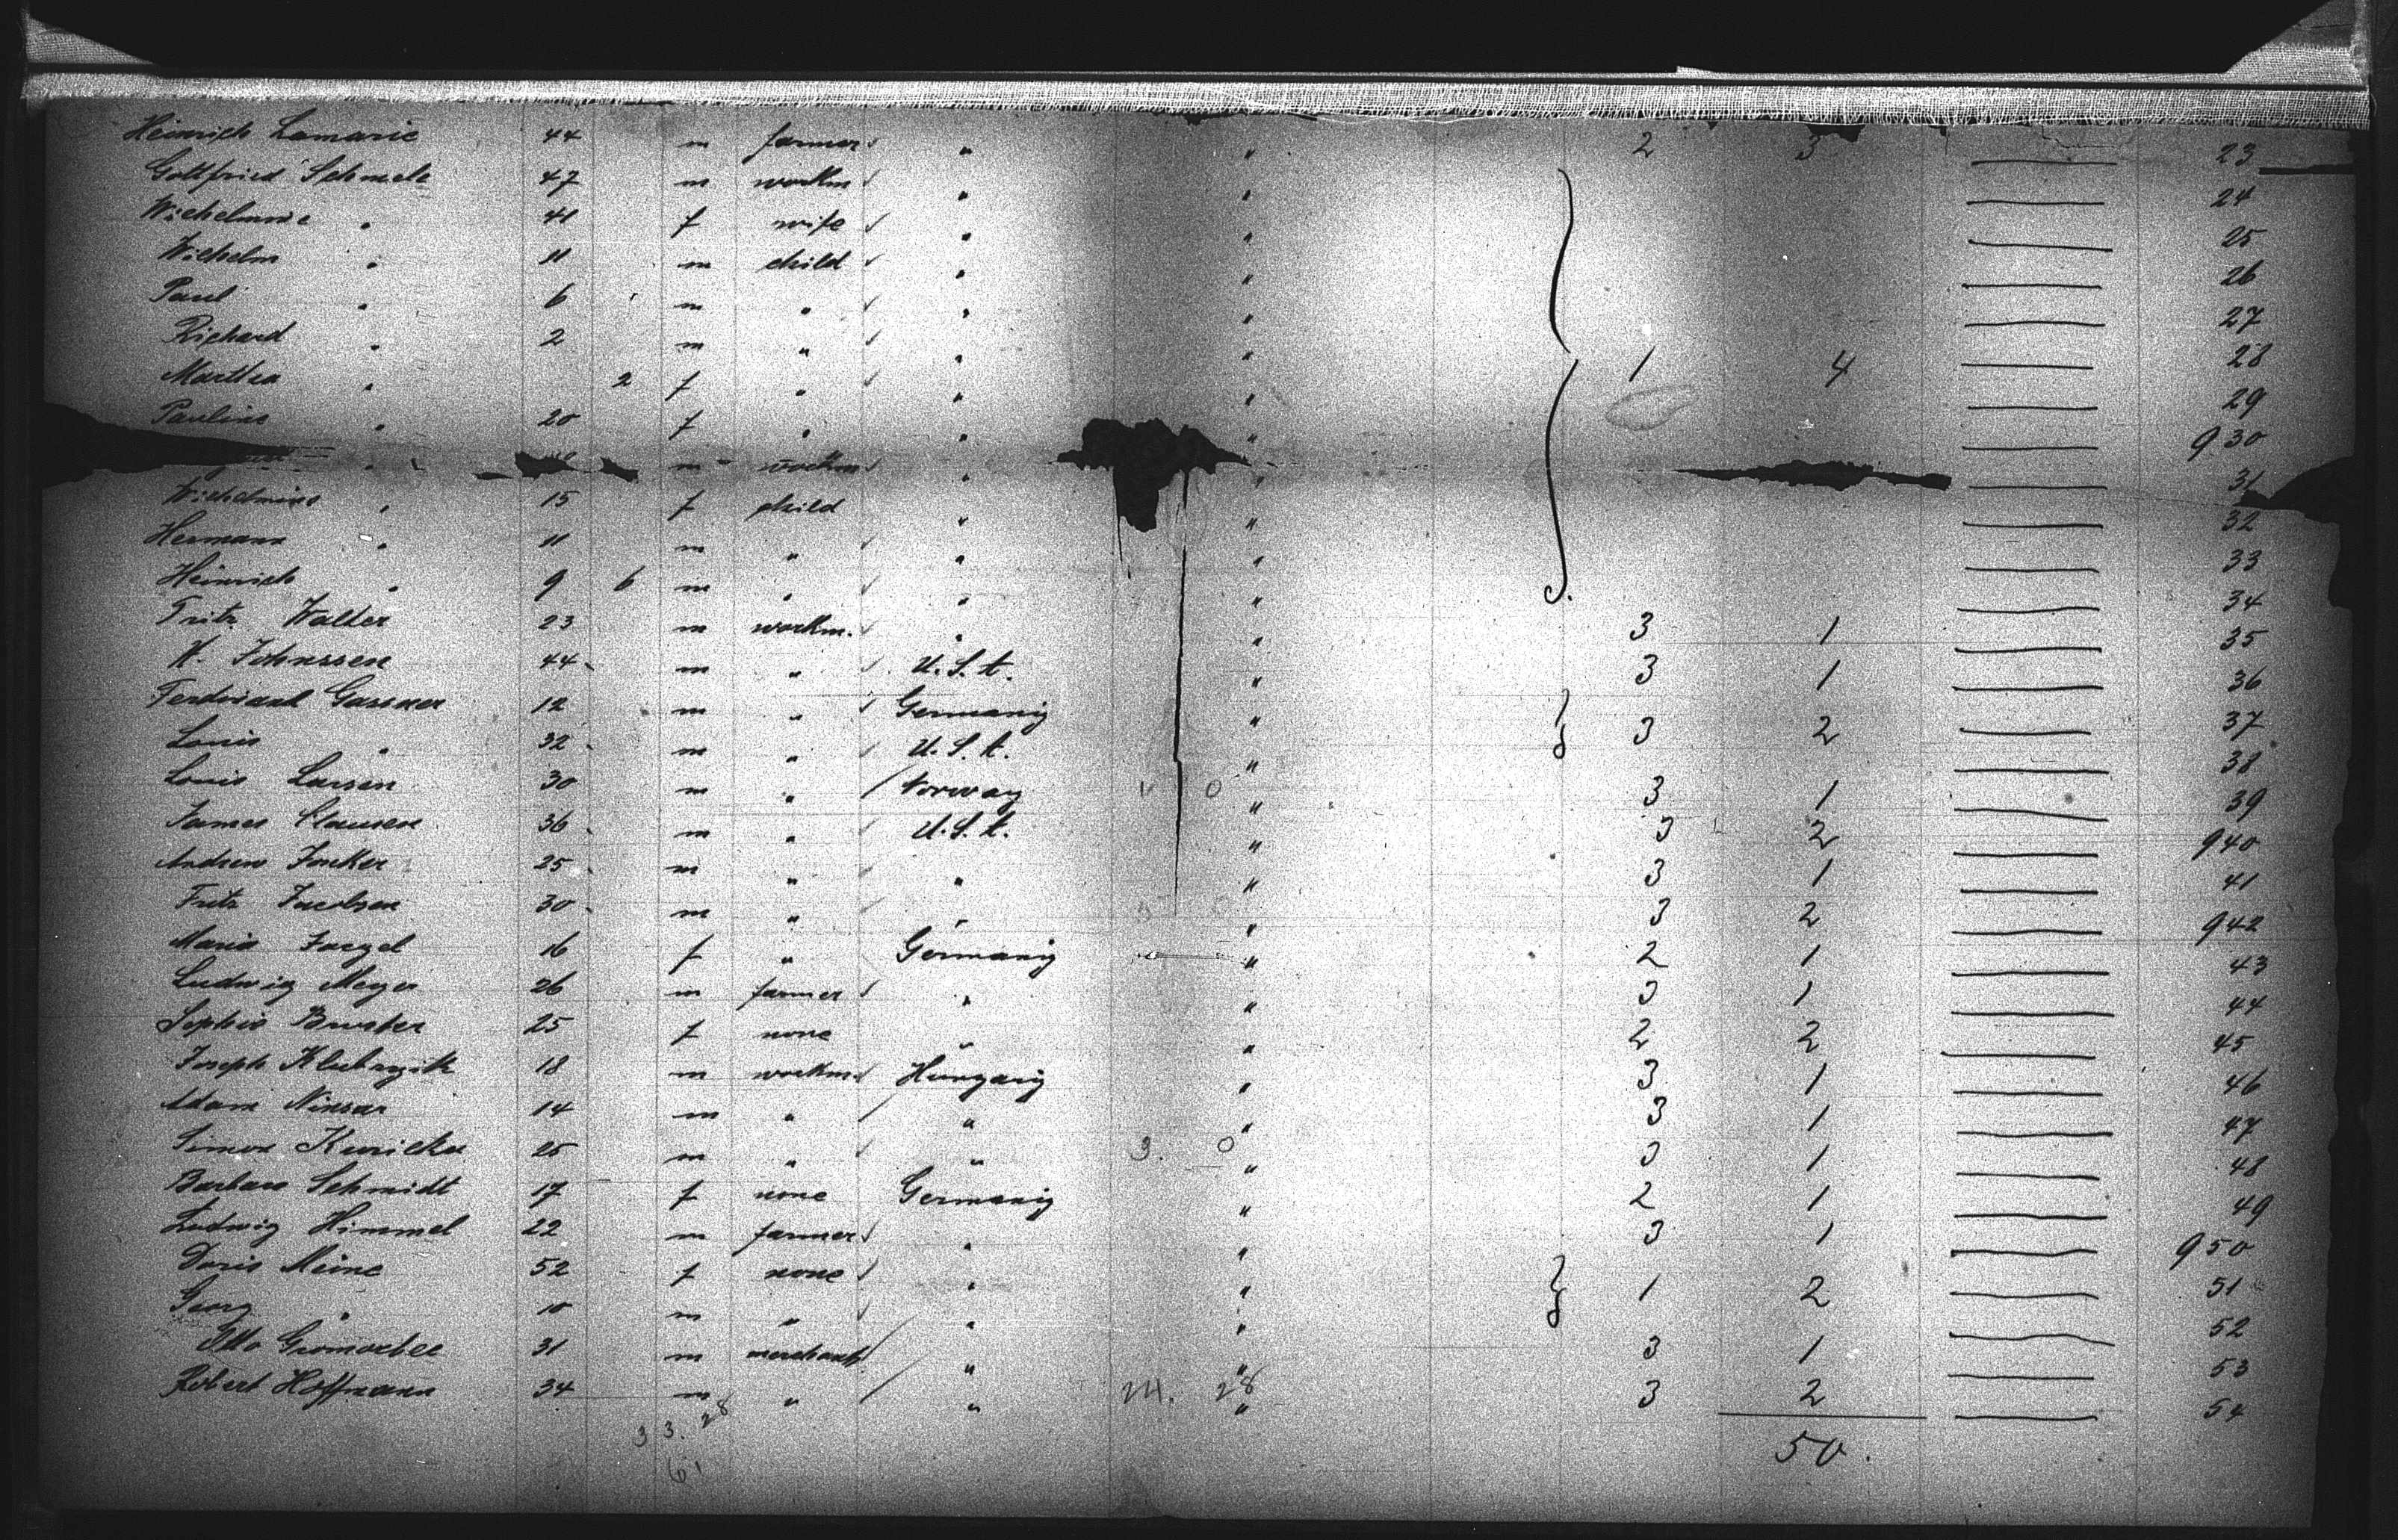 Heinrich Lamarie 44 m farmer " " 2 3 — 23
Gottfried Schmele 47 m workm " " — 24
Wilhelmine " 41 f wife " " — 25
Wilhelm " 11 m child " " — 26
Paul " 6 m " " " — 27
Richard " 2 m " " " — 28
Martha " 2 f " " " 1 4 — 29
Pauline " 20 f " " " — 930
" m workm " " — 31
Wilhelmine " 15 f child " " — 32
Hermann " 11 m " " " — 33
Heinrich " 9 6 m " " " — 34
Fritz Walter 23 m workm. " " 3 1 — 35
H. Johnssen 44 m " U.S.A. " 3 1 — 36
Ferdinand Gassner 12 m " Germany " — 37
Louis " 32 m " U.S.A. " 3 2 — 38
Louis Larsen 30 m " Norway 0 " 3 1 — 39
James Clausen 36 m " U.S.A. " 3 2 — 940
Andrew Jucker 25 m " " " 3 1 — 41
Fritz Jacobsen 30 m " " " 3 2 — 942
Maria Jaegel 16 f " Germany " 2 1 — 43
Ludwig Meyer 26 m farmer " " 3 1 — 44
Sophie 25 f none " " 2 2 — 45
Joseph 18 m workm Hungary " 3 1 — 46
Adam 14 m " " " 3 1 — 47
Simon 25 m " " 3. 0 " 3 1 — 48
Barbara Schmidt 17 f none Germany " 2 1 — 49
Ludwig Himmel 22 m farmer " " 3 1 — 950
Doris Meine 52 f none " " 1 2 — 51
Georg " 10 m " " " — 52
Otto 31 m merchant " " 3 1 — 53
Robert Hoffmann 34 m " " 24. 28 " 3 2 — 54
33. 28
61
50.